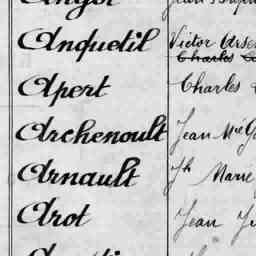 Anquetil Victor
Charles
Apert Charles
Archenoult Jean
Arnault Jh Marie
Arot Jean